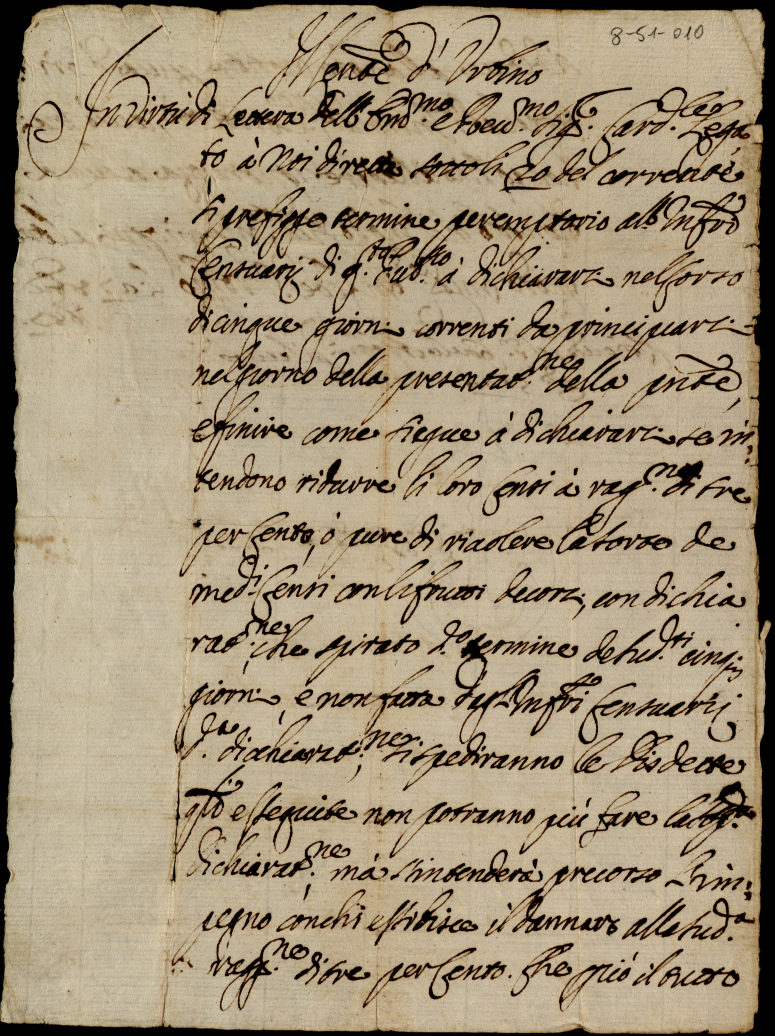 8-51-010
d'Urbino
In virtù di Lettera dell'Em.mo e Rev.mo Sig.r Card.le Lega
to à Noi diretta sottoli 20 del corrente
si prefigge termine peremptorio alli Infrti
Censuarij di q.ta à dichiararsi nel corso
di cinque giorni correnti da principiarsi
nel giorno della presentat.ne della pnte,
e finire come siegue à dichiararsi se in:
tendono ridurre li loro Censi à rag.ne di tre
per Cento, ò pure di riavere la sorte de
med.i Censi con li frutti decorsi, con dichia
rat.ne che spirato d.o termine de sud.ti cinq;
giorni, e non fatta dagl'Infrti Censuarij
d.a dichiarat.ne si spediranno le Disdette
quali esseguite non potranno più fare la
dichiarat.ne mà s'intenderà precorso l'im:
pegno con chi essibisce il dannaro alla sud.a
rag.ne di tre per Cento. Che però il tutto